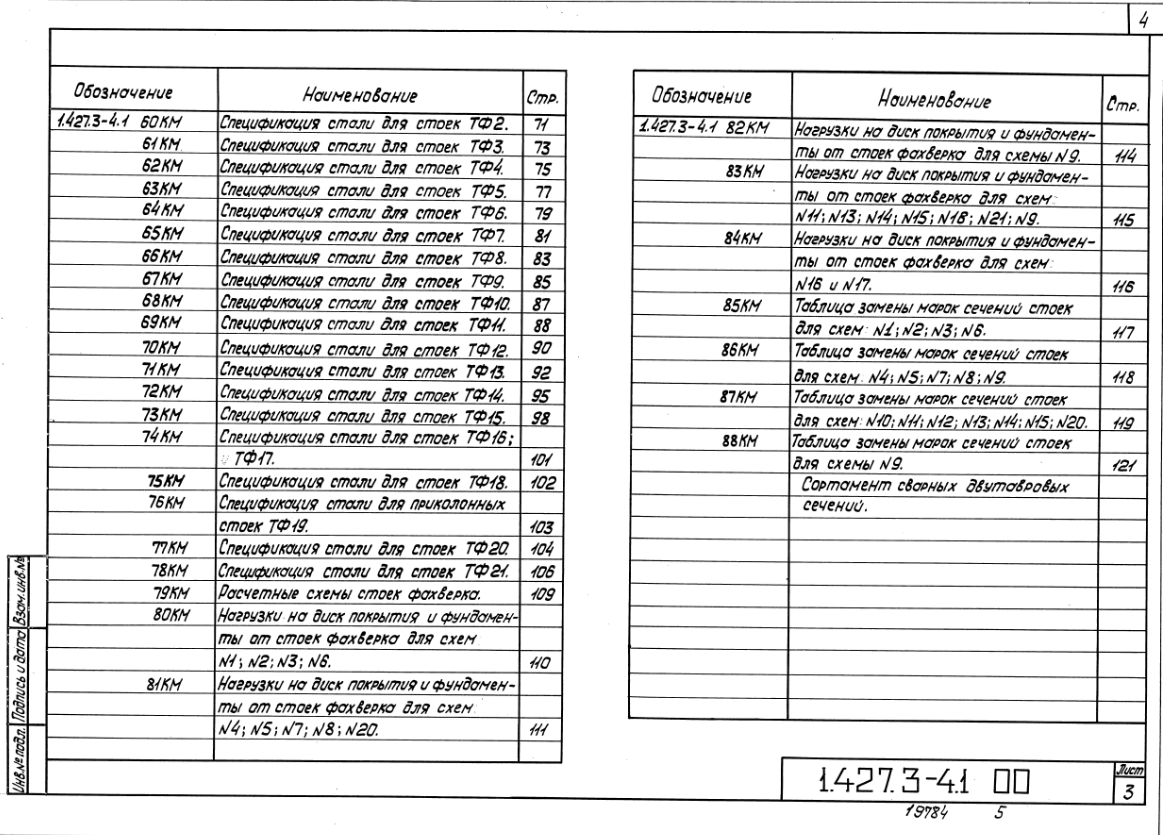 4
Обозначение Наименование Стр.
1.427.3-4.1 60КМ Спецификация стали для стоек ТФ2. 71
61КМ Спецификация стали для стоек ТФ3. 73
62КМ Спецификация стали для стоек ТФ4. 75
63КМ Спецификация стали для стоек ТФ5. 77
64КМ Спецификация стали для стоек ТФ6. 79
65КМ Спецификация стали для стоек ТФ7. 81
66КМ Спецификация стали для стоек ТФ8. 83
67КМ Спецификация стали для стоек ТФ9. 85
68КМ Спецификация стали для стоек ТФ10. 87
69КМ Спецификация стали для стоек ТФ11. 88
70КМ Спецификация стали для стоек ТФ12. 90
71КМ Спецификация стали для стоек ТФ13. 92
72КМ Спецификация стали для стоек ТФ14. 95
73КМ Спецификация стали для стоек ТФ15. 98
74КМ Спецификация стали для стоек ТФ16;
ТФ17. 101
75КМ Спецификация стали для стоек ТФ18. 102
76КМ Спецификация стали для приколонных
стоек ТФ19. 103
77КМ Спецификация стали для стоек ТФ20. 104
78КМ Спецификация стали для стоек ТФ21. 106
79КМ Расчетные схемы стоек фахверка. 109
80КМ Нагрузки на диск покрытия и фундамен-
ты от стоек фахверка для схем
N1; N2; N3; N6. 110
81КМ Нагрузки на диск покрытия и фундамен-
ты от стоек фахверка для схем:
N4; N5; N7; N8; N20. 111
Обозначение Наименование Стр.
1.427.3-4.1 82КМ Нагрузки на диск покрытия и фундамен-
ты от стоек фахверка для схемы N9. 114
83КМ Нагрузки на диск покрытия и фундамен-
ты от стоек фахверка для схем:
N11; N13; N14; N15; N18; N21; N9. 115
84КМ Нагрузки на диск покрытия и фундамен-
ты от стоек фахверка для схем:
N16 и N17. 116
85КМ Таблица замены марок сечений стоек
для схем: N1; N2; N3; N6. 117
86КМ Таблица замены марок сечений стоек
для схем: N4; N5; N7; N8; N9. 118
87КМ Таблица замены марок сечений стоек
для схем: N10; N11; N12; N13; N14; N15; N20. 119
88КМ Таблица замены марок сечений стоек
для схемы N9. 121
Сортамент сварных двутавровых
сечений.
Инв.№ подл. Подпись и дата Взам.инв.№
1.427.3-4.1 00
Лист
3
19784 5